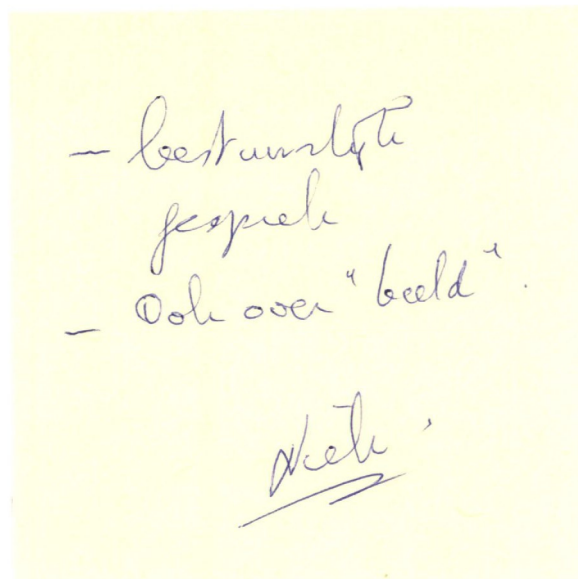 - bestuurlijk
gesprek
- Ook over "beeld".